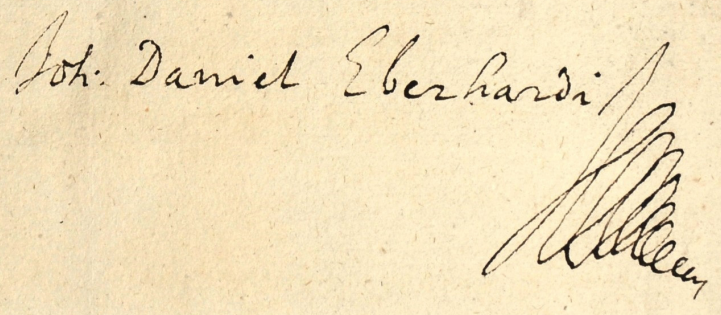 Joh. Daniel Eberhardi